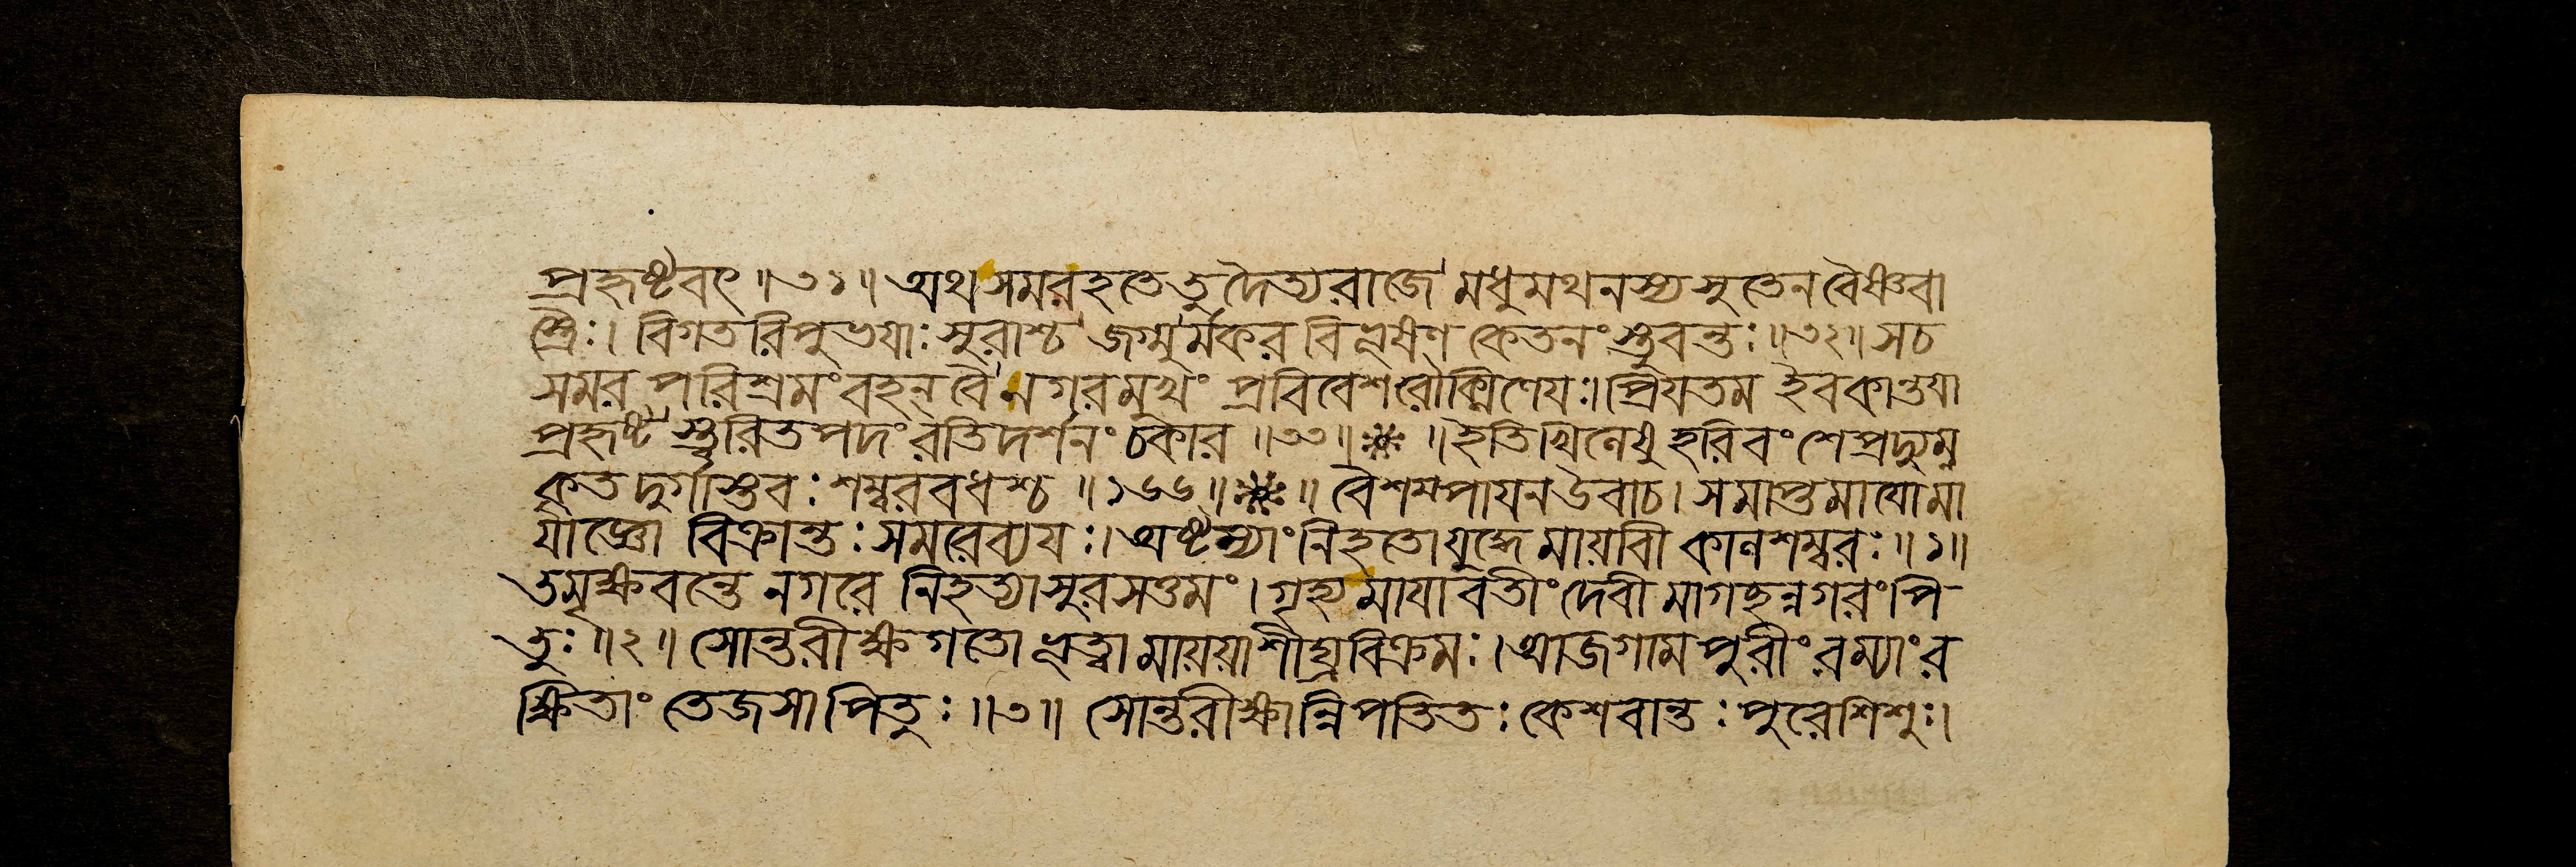 প্রহৃষ্টবৎ ॥৩১॥ অথ সমরহতেতু দৈত্যরাজে মধুমথনস্য সুতেন বৈষ্ণবা
স্ত্রৈঃ। বিগতরিপুভয়াঃ সুরাশ্চ জগ্মুর্মকর বিভূষণ কেতনং স্তুবন্তঃ ॥৩২॥ সচ
সমর পরিশ্রমং বহন্ বৈ নগরমুখং প্রবিবেশ রৌক্মিণেয়ঃ। প্রিয়তম ইব কান্তয়া
প্রহৃষ্ট স্ত্বরিতপদং রতিদর্শনং চকার ॥৩৩॥ ॥ ইতি খিলেষু হরিবংশে প্রদ্যুম্ন
কৃত দুর্গাস্তবঃ শম্বরবধশ্চ ॥১৬৬॥ ॥ বৈশম্পায়ন উবাচ। সমাপ্তমায়োমা
য়াজ্ঞো বিক্রান্তঃ সমরেব্যয়ঃ। অষ্টম্যাং নিহতো যুদ্ধে মায়াবী কালশম্বরঃ ॥১॥
তমৃক্ষবন্তে নগরে নিহত্যাসুরসত্তমং। গৃহ্য মায়াবতীং দেবী মাগচ্ছন্নগরং পি
তুঃ ॥২॥ সোন্তরীক্ষগতো ভূত্বা মায়য়া শীঘ্রবিক্রমঃ। আজগাম পুরীং রম্যাং র
ক্ষিতাং তেজসা পিতুঃ ॥৩॥ সোন্তরীক্ষান্নিপতিতঃ কেশবান্তঃ পুরে শিশুঃ।